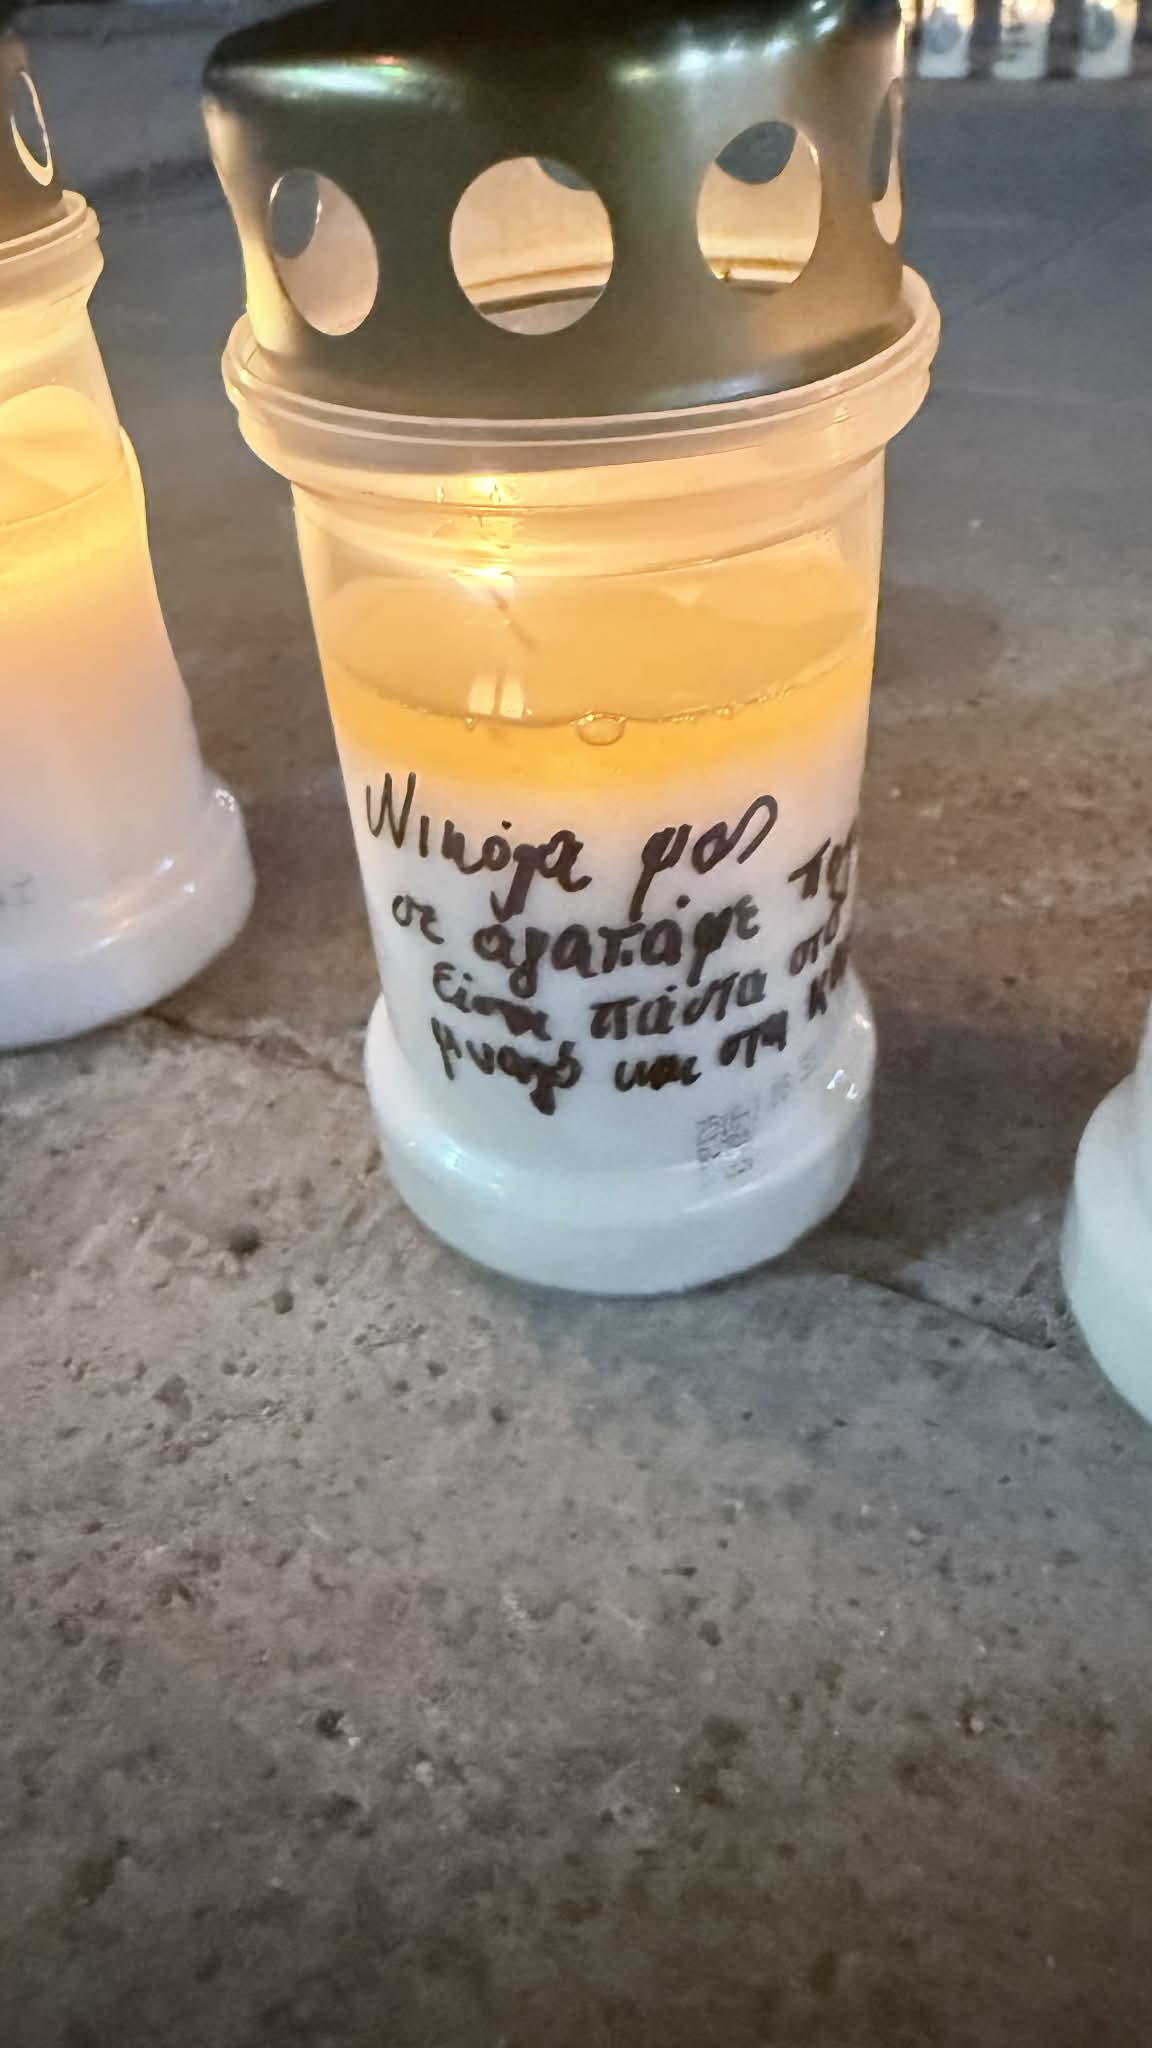 Νικόλα μας
σε αγαπάμε
είσαι πάντα στο
μυαλό και στη